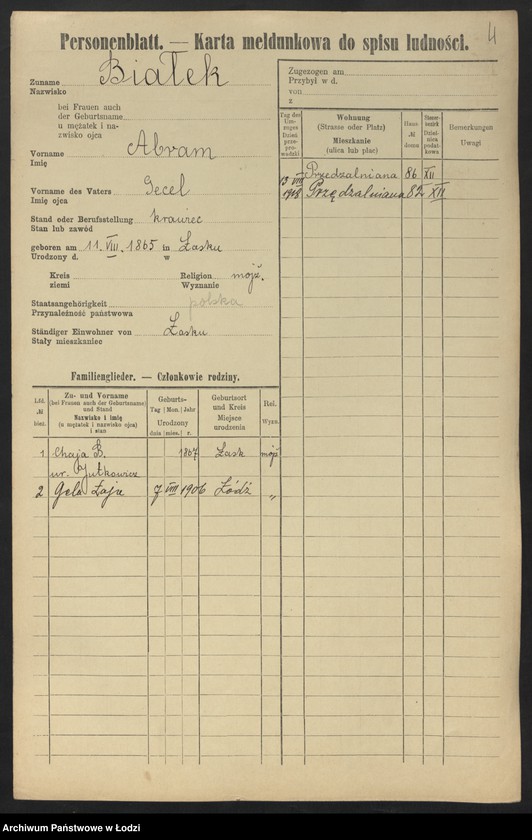 4
Personenblatt. — Karta meldunkowa do spisu ludności.
Zuname Białek
Nazwisko
bei Frauen auch
der Geburtsname
u mężatek i na-
zwisko ojca
Vorname Abram
Imię
Vorname des Vaters Gecel
Imię ojca
Stand oder Berufsstellung krawiec
Stan lub zawód
geboren am 11. VIII. 1865 in Łasku
Urodzony d. w
Kreis Religion mojż.
ziemi Wyznanie
Staatsangehörigkeit polska
Przynależność państwowa
Ständiger Einwohner von Łasku
Stały mieszkaniec
Zugezogen am
Przybył w d.
von
z
Tag des Um-zuges Dzień prze-prowadzki
Wohnung
(Strasse oder Platz)
Mieszkanie
(ulica lub plac)
Haus-
№
domu
Steuer-
bezirk
Dziel-
nica
podat-
kowa
Bemerkungen
Uwagi
Przedzalniana 86 XII
13 VIII 1918 Przędzalniana 82 XII
Familienglieder. — Członkowie rodziny.
Lfd.
№
bież.
Zu- und Vorname
(bei Frauen auch der Geburtsname)
und Stand
Nazwisko i imię
(u mężatek i nazwisko ojca)
i stan
Geburts-
Tag | Mon. | Jahr
Urodzony
dnia | mies. | r.
Geburtsort
und Kreis
Miejsce
urodzenia
Rel.
Wyzn.
1 Chaja B. 1867 Łask mojż
ur. Jutkowicz
2 Gela Łaja 7 VIII 1906 Łódź "
Archiwum Państwowe w Łodzi